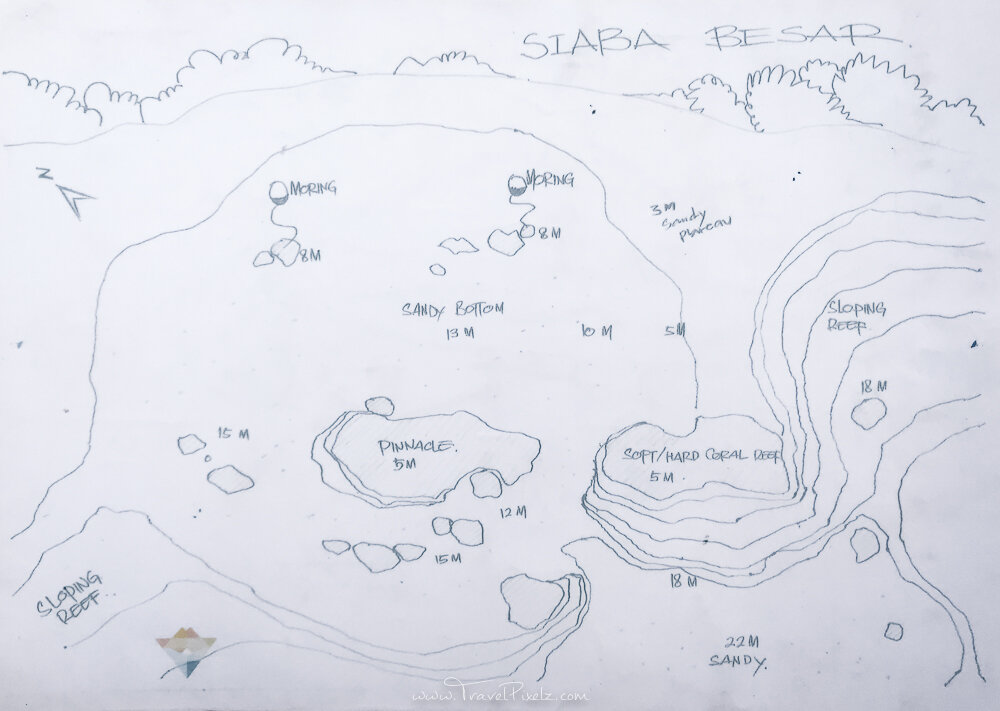 SIABA BESAR.
N
MORING
MORING
8M
8M
3M
Sandy
Plateau
SANDY BOTTOM
13 M
10 M
5M
SLOPING
REEF.
18 M
15 M
PINNACLE.
5M
SOFT/HARD CORAL REEF
5 M.
12 M
15 M
18 M
SLOPING
REEF.
22M
SANDY.
www.TravelPixelz.com